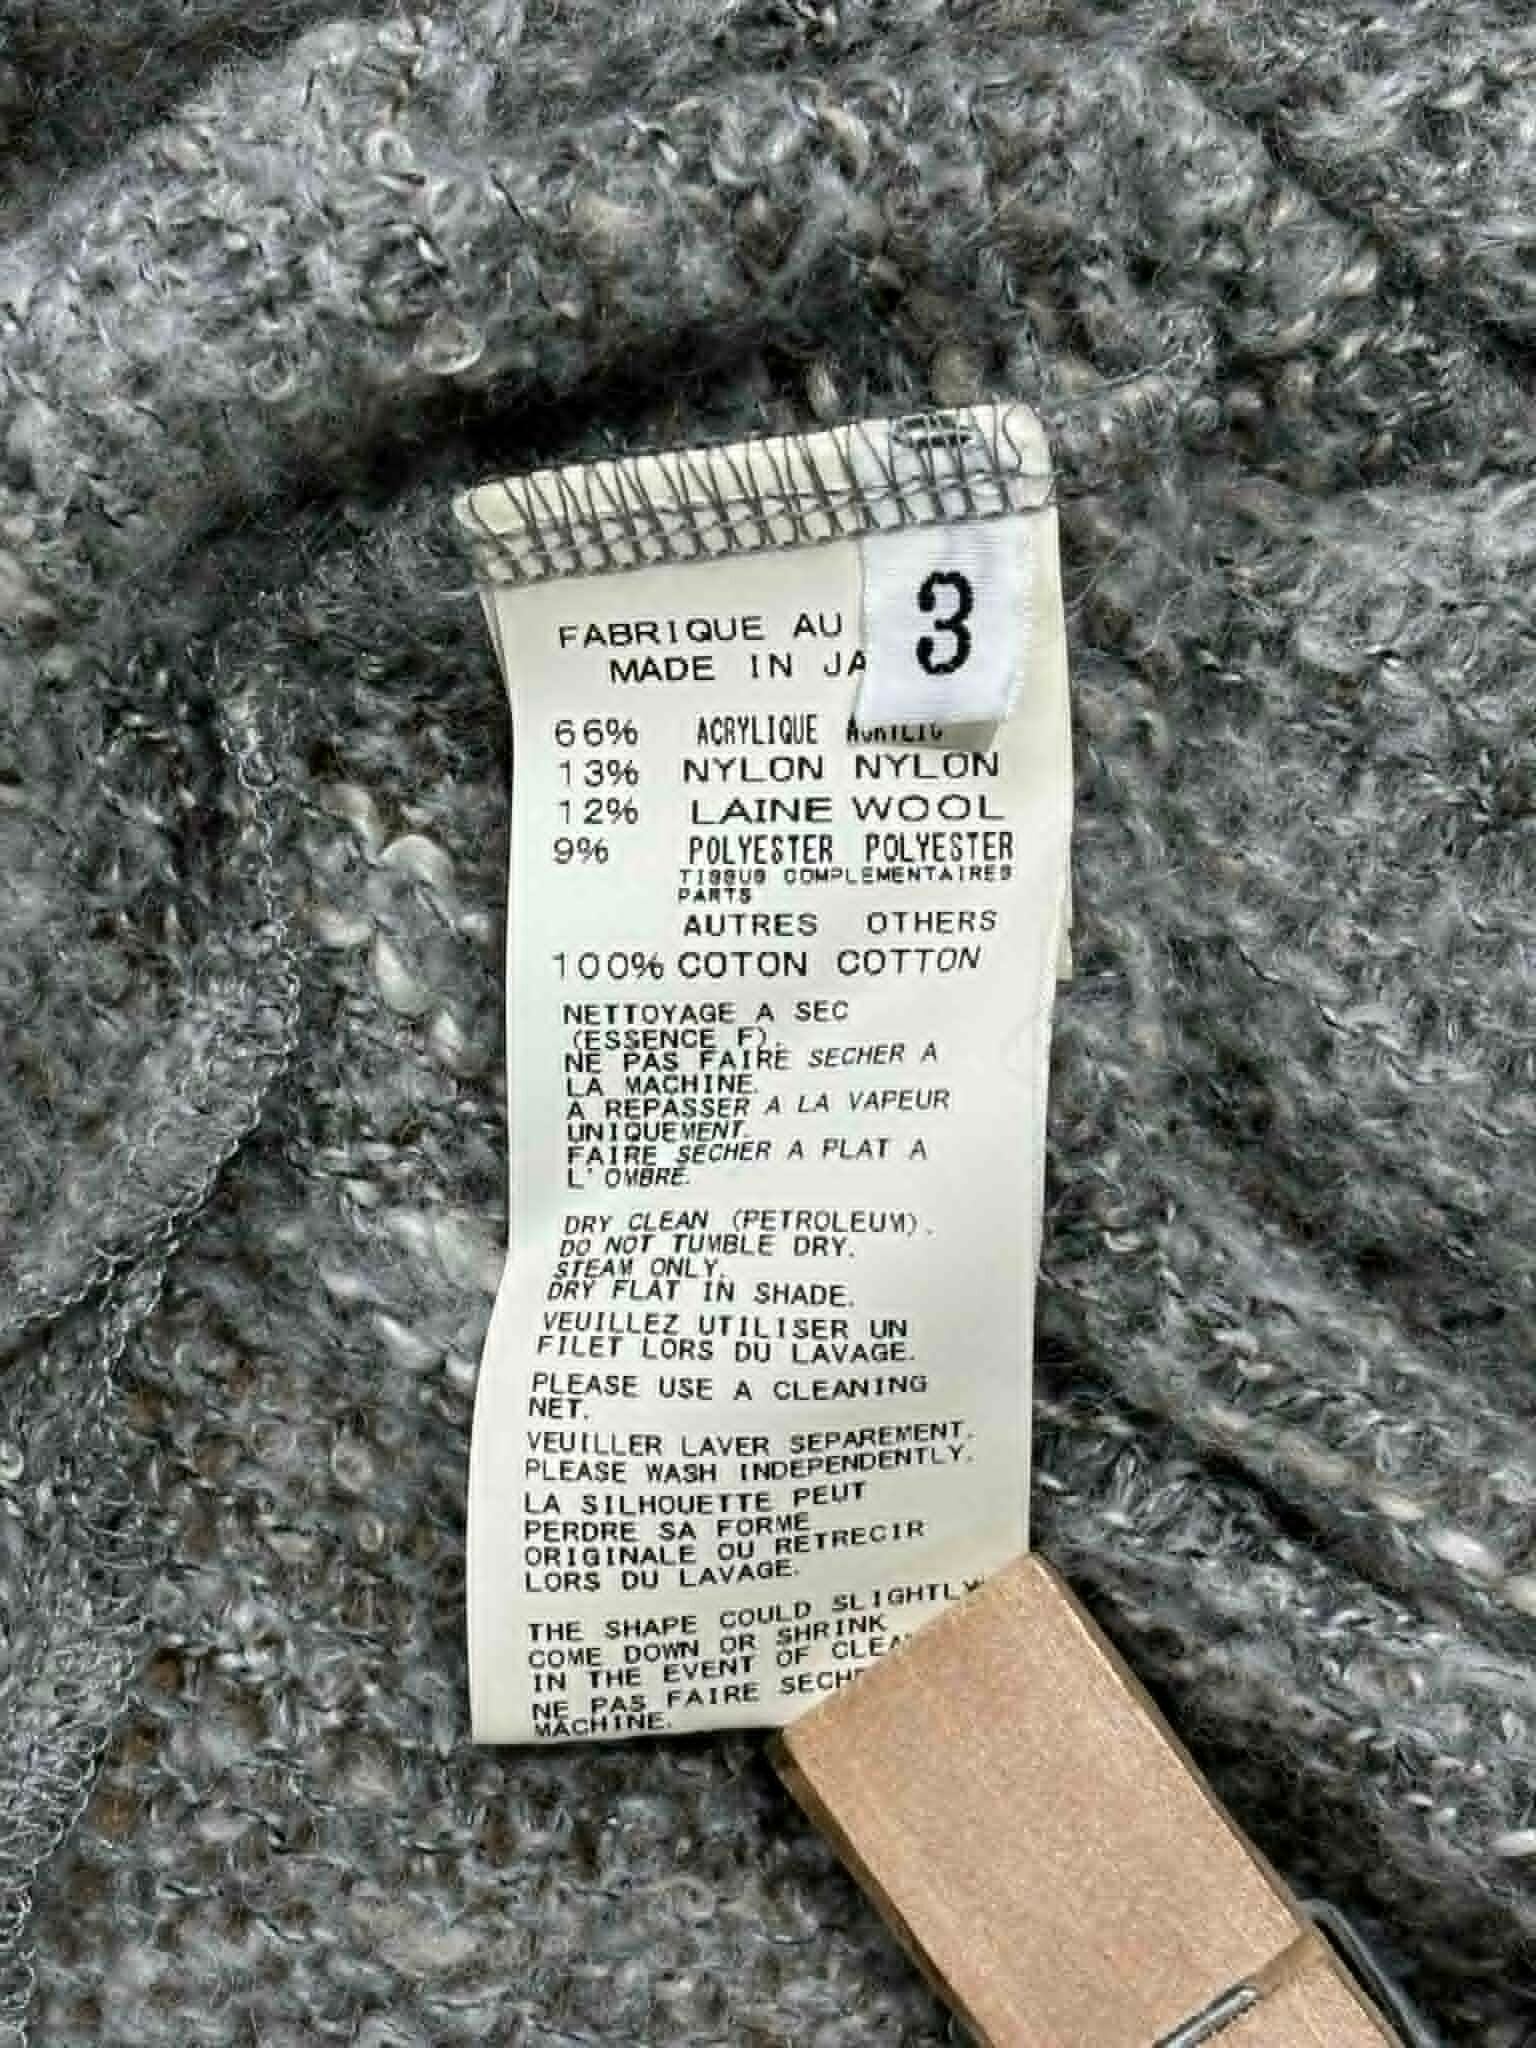 3
FABRIQUE AU
MADE IN JA
66% ACRYLIQUE ACRYLIC
13% NYLON NYLON
12% LAINE WOOL
9% POLYESTER POLYESTER
TISSUS COMPLEMENTAIRES
PARTS
AUTRES OTHERS
100% COTON COTTON
NETTOYAGE A SEC
(ESSENCE F).
NE PAS FAIRE SECHER A
LA MACHINE.
A REPASSER A LA VAPEUR
UNIQUEMENT.
FAIRE SECHER A PLAT A
L'OMBRE.
DRY CLEAN (PETROLEUM).
DO NOT TUMBLE DRY.
STEAM ONLY.
DRY FLAT IN SHADE.
VEUILLEZ UTILISER UN
FILET LORS DU LAVAGE.
PLEASE USE A CLEANING
NET.
VEUILLER LAVER SEPAREMENT.
PLEASE WASH INDEPENDENTLY.
LA SILHOUETTE PEUT
PERDRE SA FORME
ORIGINALE OU RETRECIR
LORS DU LAVAGE.
THE SHAPE COULD SLIGHTLY
COME DOWN OR SHRINK
IN THE EVENT OF CLEA
NE PAS FAIRE SECHE
MACHINE.